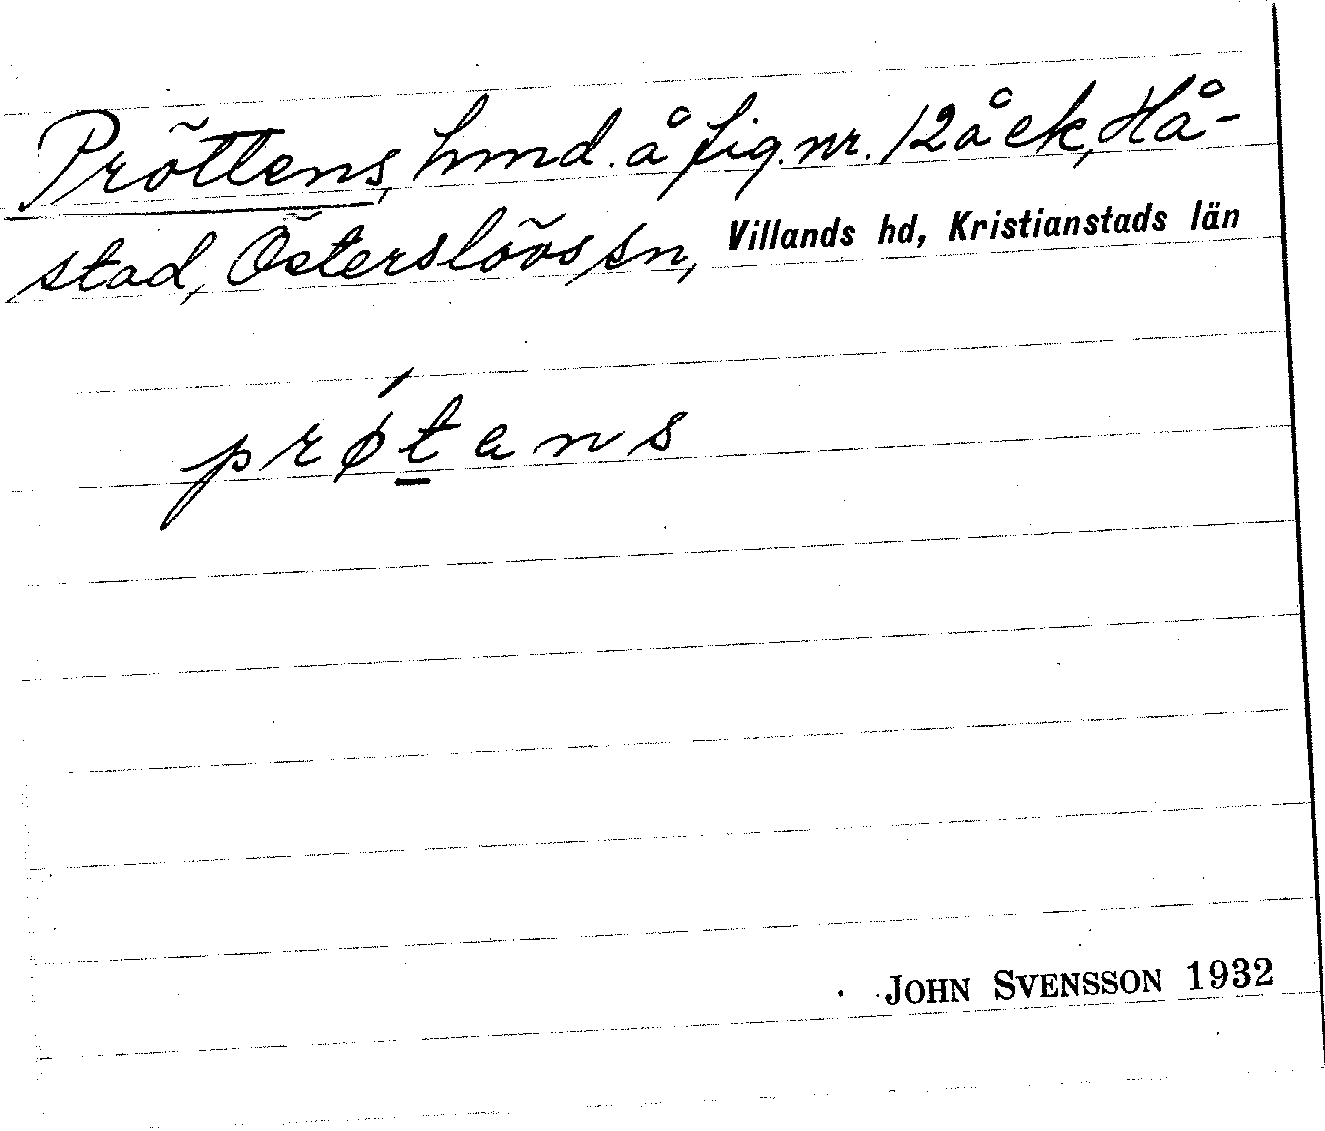 Pröttens, hmd. å fig. nr. 12 å ek, Hå-
stad, Österslövs sn, Villands hd, Kristianstads län
prǿt̲ans
JOHN SVENSSON 1932